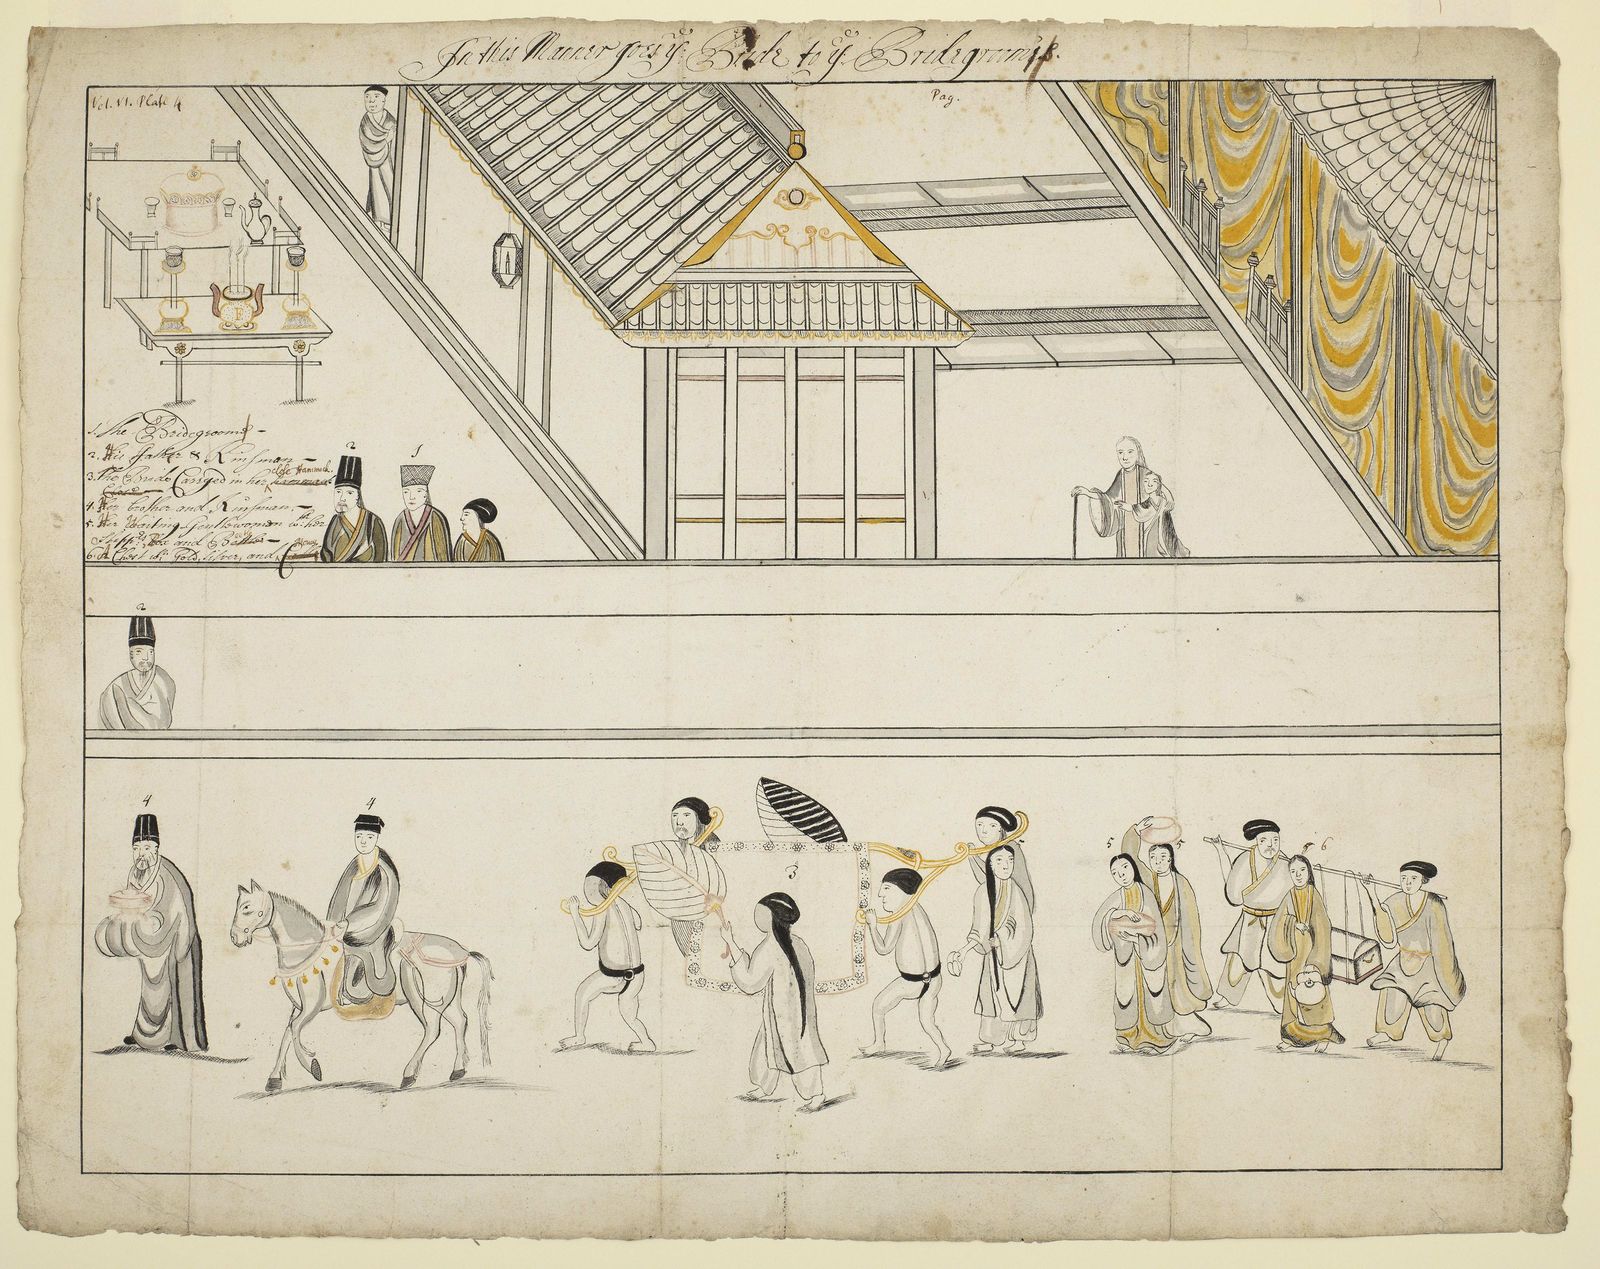 In this Manner goes yᵉ Bride to yᵉ Bridegroom's.
Vol. VI. Plate 4
Pag.
1. The Bridegroom
2. His Father & Kinsman
3. The Bride Carryed in her close Hammack.
4. Her brother and Kinsman.
5. Her Waiting Gentlewomen wᵗʰ her
Box and
6. A Chest wᵗʰ Gold, silver, and
2
1
2
4
4
3
5
5
6